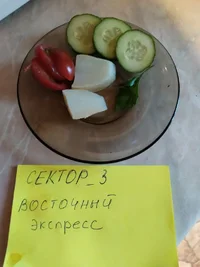 СЕКТОР_3
ВОСТОЧНЫЙ
экспресс